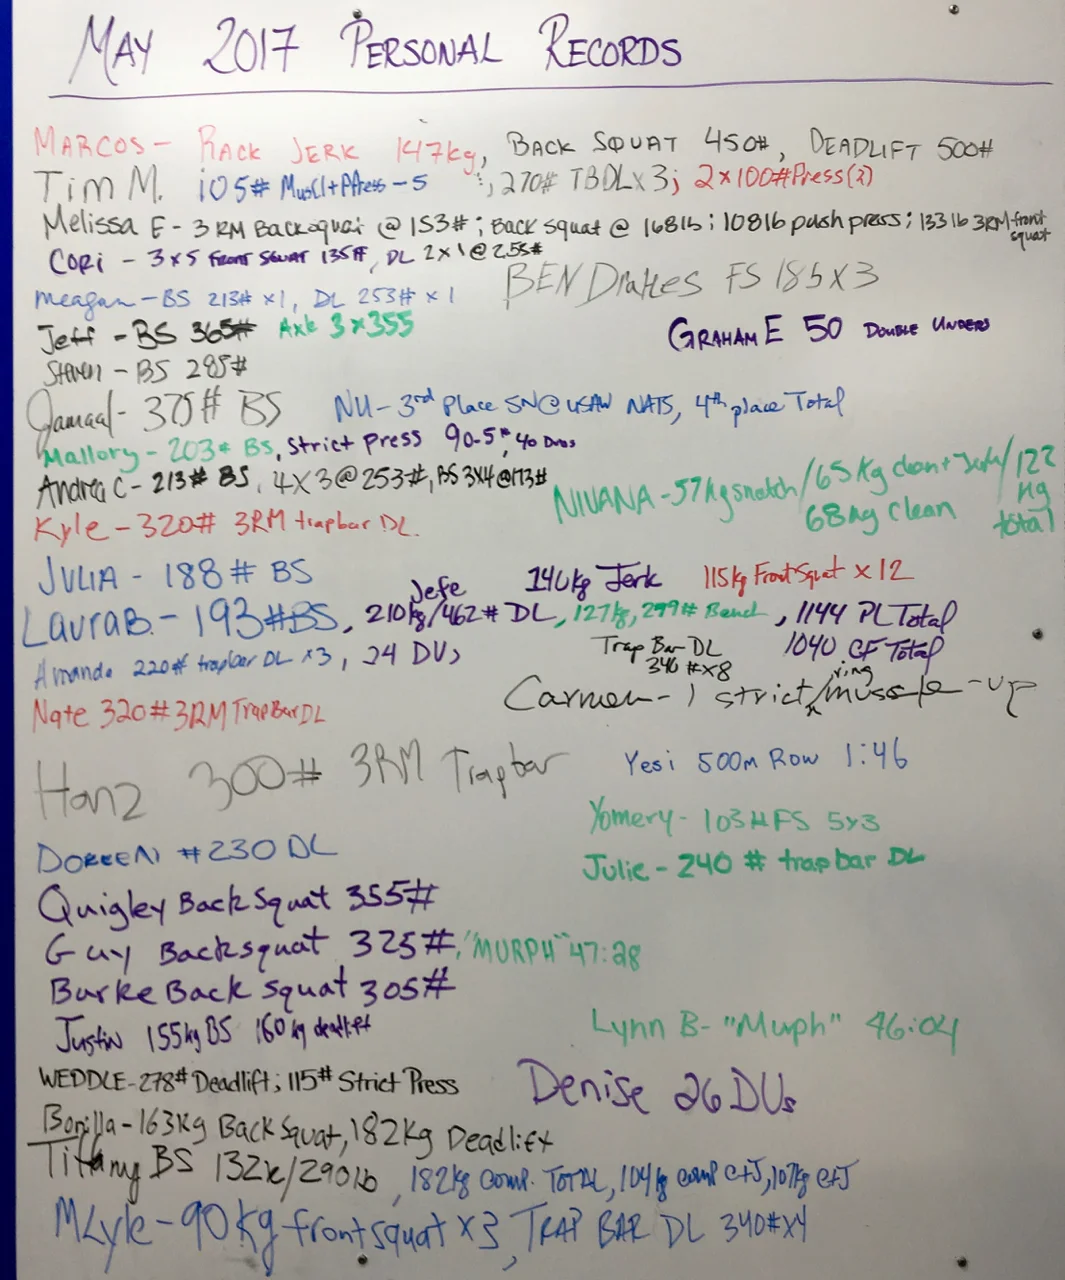 MAY 2017 PERSONAL RECORDS
MARCOS - RACK JERK 147kg, BACK SQUAT 450#, DEADLIFT 500#
Tim M. 105# Muscl+PPress-5, 270# TBDL x 3; 2x100#Press(2)
Melissa E - 3RM Backsquat @ 153#; Back squat @ 168lb; 108lb push press; 133lb 3RM front squat
CORi - 3x5 FRONT SQUAT 135#, DL 2x1@255#
BEN Drakes FS 185x3
meagan - BS 213# x1, DL 253# x 1
Jeff - BS 365# Axle 3x355
GRAHAM E 50 DOUBLE UNDERS
Steven - BS 285#
Jamaal - 375# BS
NU - 3rd Place SN@USAW NATS, 4th place Total
Mallory - 203# BS, Strict Press 90-5#, 40 Dubs
Andrea C - 213# BS, 4x3@253#, BS 3x4@173#
NIVANA - 57kg snatch/65 Kg clean + Jerk/122 Kg total
68Kg Clean
Kyle - 320# 3RM trapbar DL.
JULIA - 188# BS
Jefe 140kg Jerk 115kg Front Squat x 12
Laura B. - 193#BS, 210kg/462# DL, 127kg, 279# Bench, 1144 PL Total
Trap Bar DL 346#x8
1040 CF Total
Amanda 220# trapbar DL x3, 24 DUs
Carmen - 1 strict ring muscle-up
Nate 320# 3RM Trap Bar DL
Hanz 300# 3RM Trapbar
Yesi 500m Row 1:46
Yomery - 103# FS 5x3
DOREEN #230 DL
Julie - 240 # trap bar DL
Quigley Back Squat 355#
Guy Backsquat 325#, "MURPH" 47:28
Burke Back Squat 305#
Justin 155kg BS 160kg deadlift
Lynn B- "Murph" 46:04
WEDDLE-278# Deadlift; 115# Strict Press
Denise 26 DUs
Bonilla - 163Kg Back Squat, 182Kg Deadlift
Tiffany BS 132k/290lb, 182kg comp. TOTAL, 104kg comp C+J, 107kg C+J
MLyle - 90Kg frontsquat x 3, TRAP BAR DL 340#x4